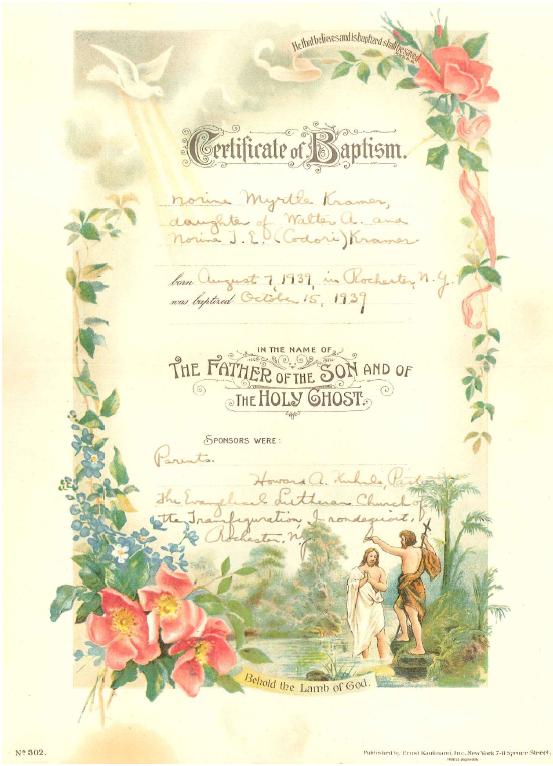 He that believes and is baptized shall be saved
Certificate of Baptism.
Norine Myrtle Kramer,
daughter of Walter A. and
Norine J. E. (Codori) Kramer
born August 7, 1939, in Rochester, N.Y.
was baptized October 15, 1939
IN THE NAME OF
THE FATHER OF THE SON AND OF
THE HOLY GHOST.
SPONSORS WERE:
Parents.
Howard A. Pastor
The Evangelical Lutheran Church of
the Transfiguration, Irondequoit,
Rochester, NY
Behold the Lamb of God.
No 302.
Published by Ernst Kaufmann, Inc., New York 7-11 Spruce Street.